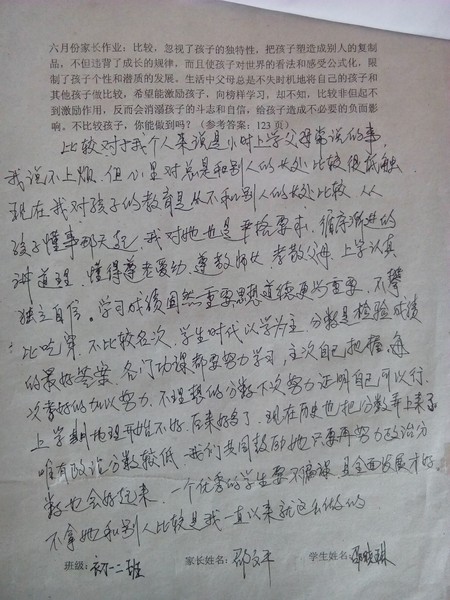 六月份家长作业：比较，忽视了孩子的独特性，把孩子塑造成别人的复制
品，不但违背了成长的规律，而且使孩子对世界的看法和感受公式化，限
制了孩子个性和潜质的发展。生活中父母总是不失时机地将自己的孩子和
其他孩子做比较，希望能激励孩子，向榜样学习，却不知，比较非但起不
到激励作用，反而会消弱孩子的斗志和自信，给孩子造成不必要的负面影
响。不比较孩子，你能做到吗？（参考答案：123页）
比较对于我个人来说是小时上学父母常说的事,
我说不上烦，但心里对总是和别人的长处比较很抵触
现在我对孩子的教育是从不和别人的长处比较，从
孩子懂事那天起，我对她也是严格要求，循序渐进的
讲道理，懂得尊老爱幼，尊敬师长，孝敬父母，上学认真
独立自信。学习成绩固然重要思想道德更为重要，不攀
比吃穿，不比较名次，学生时代以学为主，分数是检验成绩
的最好答案，各门功课都要努力学习，主次自己把握，每
次考好的加以努力，不理想的分数下次努力证明自己可以行.
上学期地理开始不好，后来好了，现在历史也把分数弄上来了
唯有政治分数较低，我们共同鼓励她只要再努力政治分
数也会好起来，一个优秀的学生要不偏课，是全面发展才好
不拿她和别人比较是我一直以来就这么做的
班级：初一二班 家长姓名：邵文平 学生姓名：邵